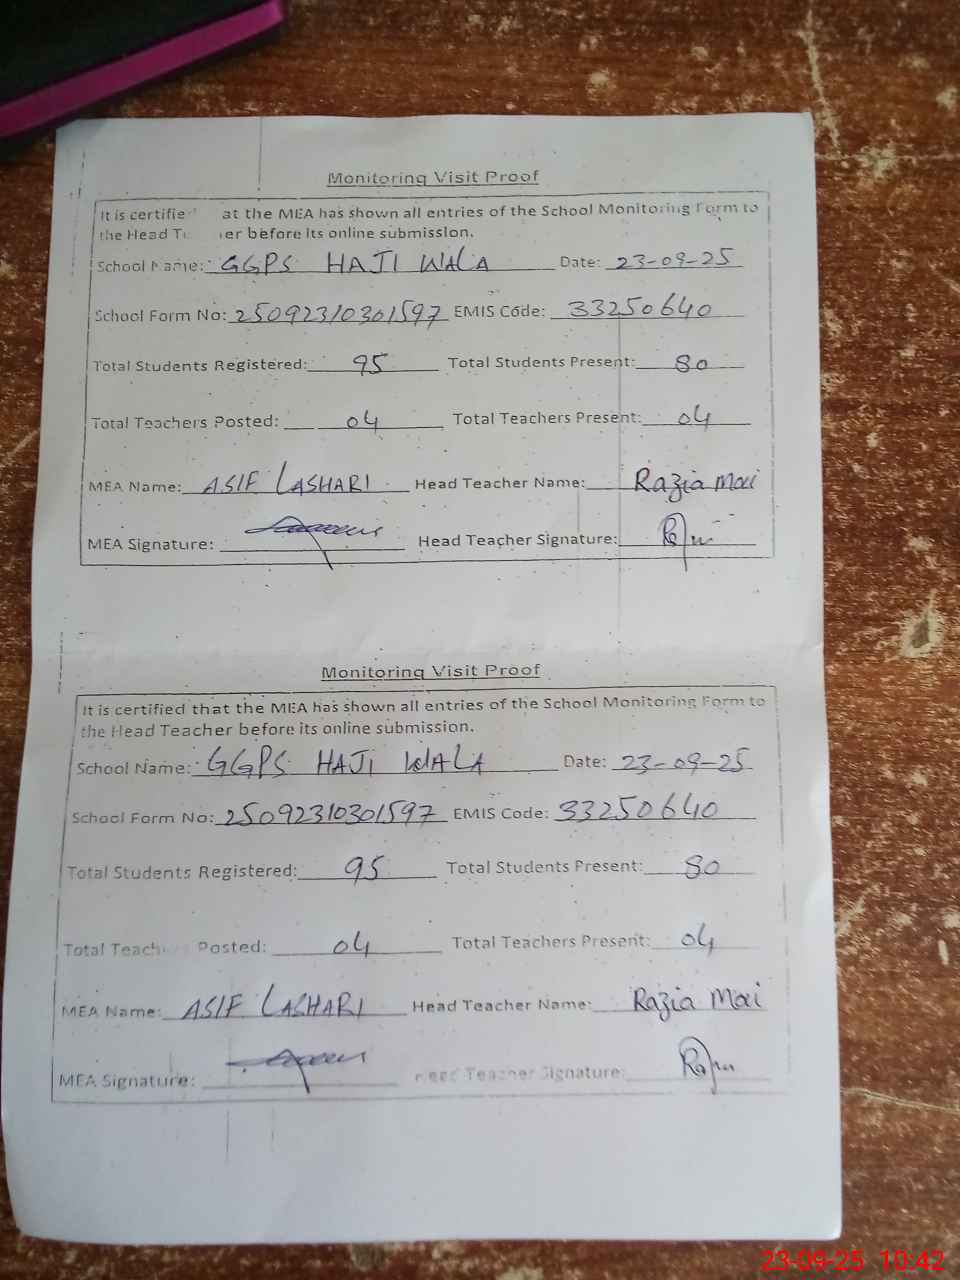 Monitoring Visit Proof
It is certifie at the MEA has shown all entries of the School Monitoring Form to
the Head er before its online submission.
School Name: GGPS HAJI WALA Date: 23-09-25
School Form No: 25092310301597 EMIS Code: 33250640
Total Students Registered: 95 Total Students Present: 80
Total Teachers Posted: 04 Total Teachers Present: 04
MEA Name: ASIF LASHARI Head Teacher Name: Razia Mai
MEA Signature: Head Teacher Signature:
Monitoring Visit Proof
It is certified that the MEA has shown all entries of the School Monitoring Form to
the Head Teacher before its online submission.
School Name: GGPS HAJI WALA Date: 23-09-25
School Form No: 25092310301597 EMIS Code: 33250640
Total Students Registered: 95 Total Students Present: 80
Total Teachers Posted: 04 Total Teachers Present: 04
MEA Name: ASIF LASHARI Head Teacher Name: Razia Mai
MEA Signature: Head Teacher Signature:
23-09-25 10:42